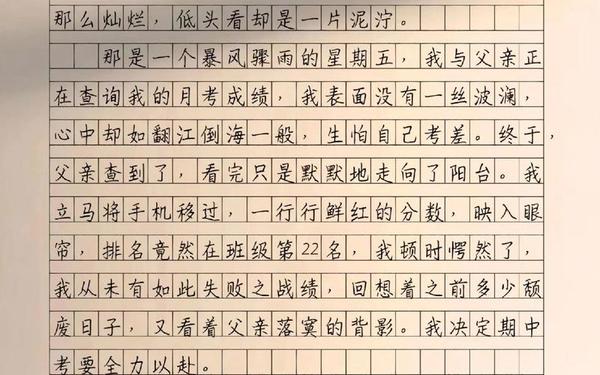 那么灿烂，低头看却是一片泥泞。
那是一个暴风骤雨的星期五，我与父亲正
在查询我的月考成绩，我表面没有一丝波澜，
心中却如翻江倒海一般，生怕自己考差。终于，
父亲查到了，看完只是默默地走向了阳台。我
立马将手机移过，一行行鲜红的分数，映入眼
帘，排名竟然在班级第22名，我顿时愕然了，
我从未有如此失败之战绩，回想着之前多少颓
废日子，又看着父亲落寞的背影。我决定期中
考要全力以赴。